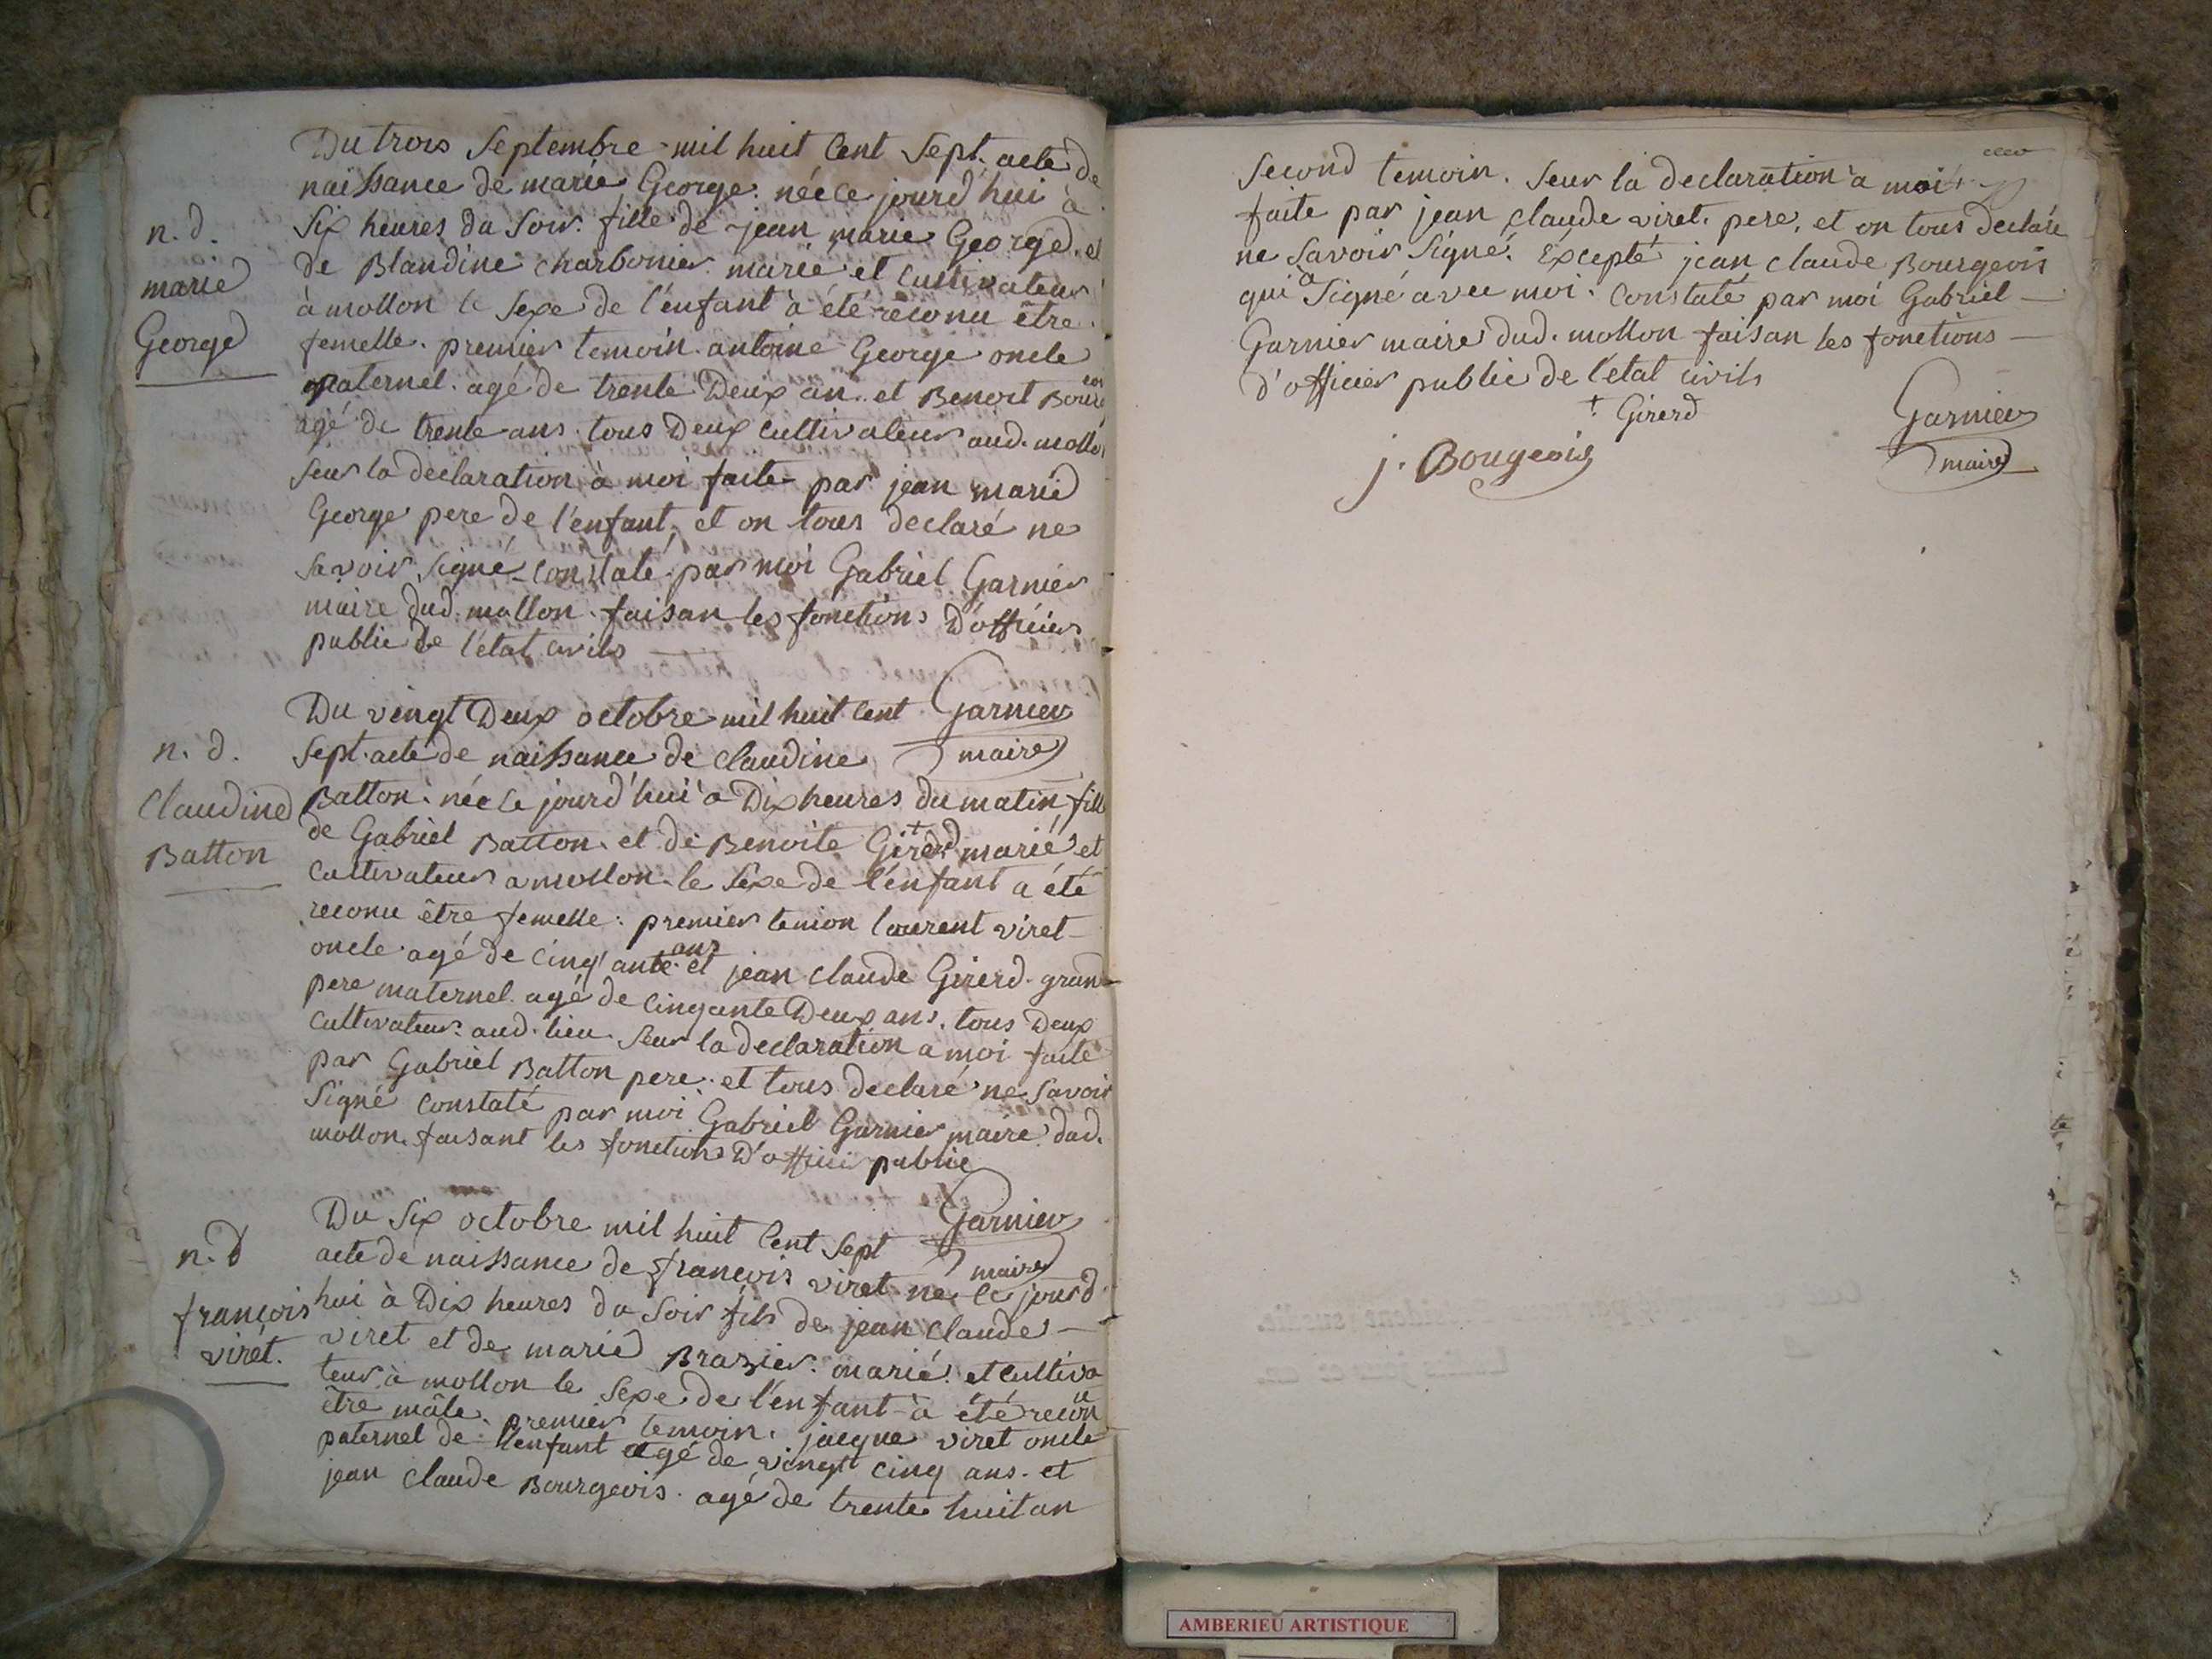 Du trois Septembre mil huit Cent Sept. acte de
naissance de marie George. née ce jourd'hui à
Six heures du Soir. fille de jean marie George. et
de Blandine charbonier. marié et cultivateur
à mollon le Sexe de l'enfant à été reconu être
femelle. premier temoin. antoine George oncle
paternel. agé de trente Deux an. et Benoit
agé de trente ans. tous Deux cultivateur aud. mollon
Seur la declaration à moi faite par jean marie
George pere de l'enfant, et on tous declaré ne
Savoir Signé. Constaté par moi Gabriel Garnier
maire dud. mollon. faisan les fonctions D'officier
public de l'état civils
Garnier
maire
n. d.
marie
George
Du vingt Deux octobre mil huit Cent
Sept. acte de naissance de Claudine
Batton. née ce jourd'hui a Dix heures du matin, fille
de Gabriel Batton. et de Benoite + Girerd marié et
Cultivateur a mollon. le Sexe de l'enfant a été
reconu être femelle. premier temion laurent viret
oncle agé de cinq'ante ans et jean Claude Girerd. grand
pere maternel. agé de cinqante Deux ans. tous Deux
Cultivateur. aud. lieu. Seur la declaration a moi faite
par Gabriel Batton pere. et tous declaré ne Savoir
Signé Constaté par moi Gabriel Garnier maire dud.
mollon. faisant les fonctions D'officier public
Garnier
maire
n. d.
Claudine
Batton
Du Six octobre mil huit Cent Sept
acte de naissance de françois viret né ce jourd
hui à Dix heures du Soir fils de jean Claude
viret et de marie Brazier. marié. et cultiva
teur à mollon le Sexe de l'enfant à été reconu
être mâle. premier temoin. jacque viret oncle
paternel de l'enfant agé de vingt cinq ans. et
jean Claude Bourgeois. agé de trente huit an
n. d
françois
viret.
Second temoin. Seur la declaration a moi
faite par jean claude viret. pere. et on tous declare
ne Savoir Signé. Excepté jean claude Bourgeois
qui a Signé avec moi. Constaté par moi Gabriel
Garnier maire dud. mollon faisan les fonctions
d'officier public de l'état civils
+ Girerd
Garnier
maire
j. Bougeois
AMBERIEU ARTISTIQUE